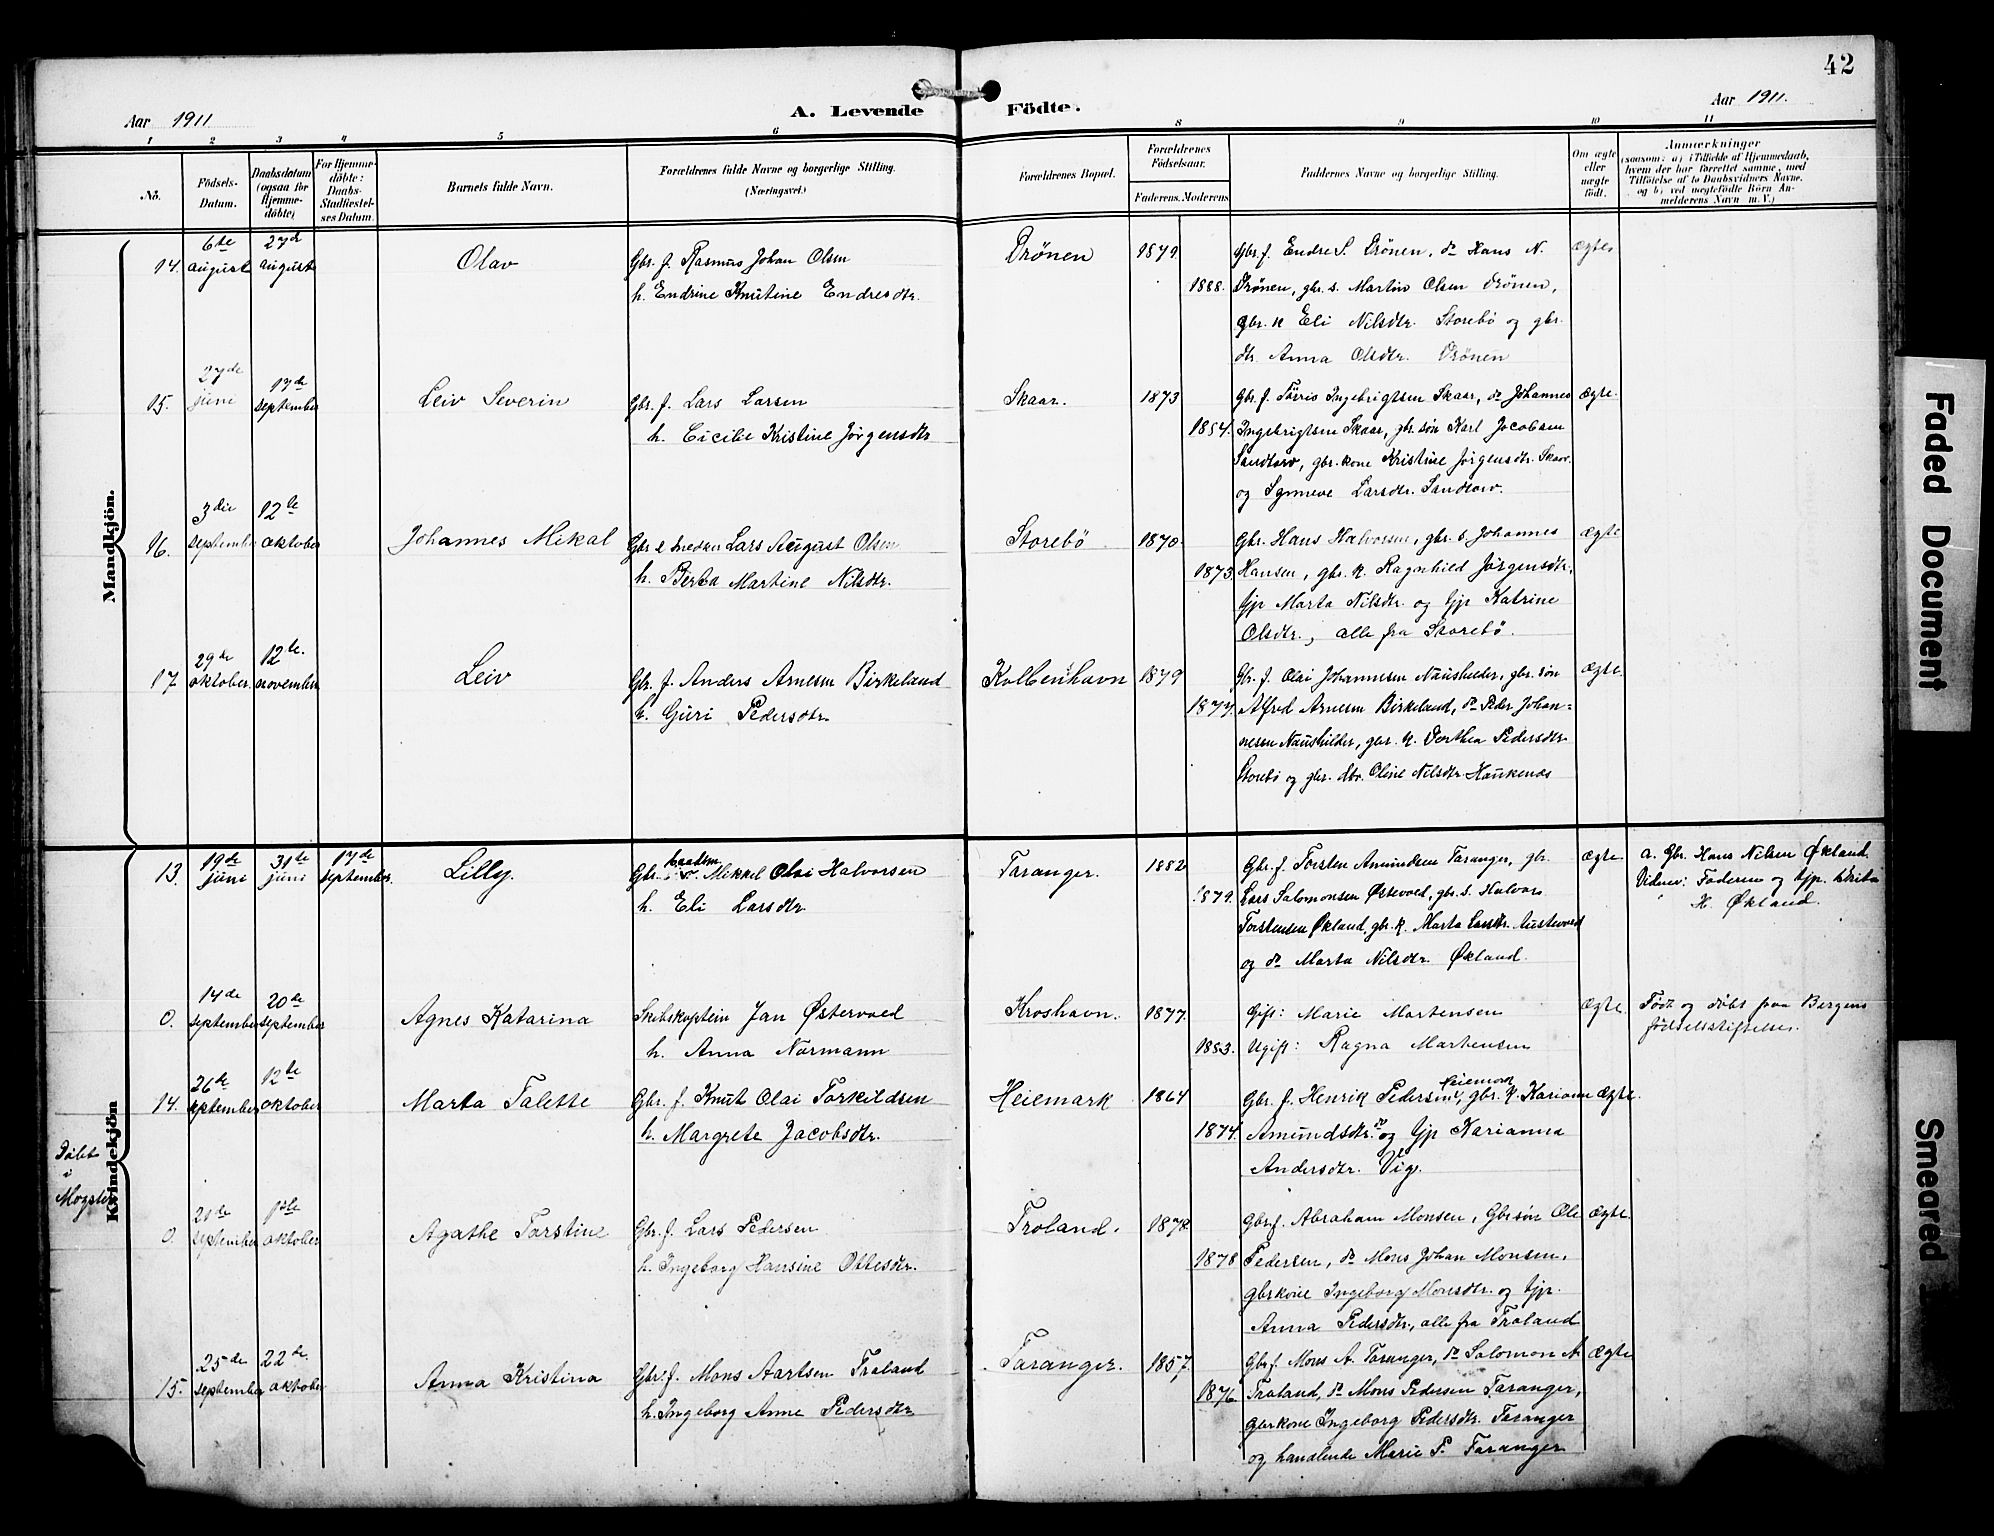 42
Aar 1911
A. Levende Födte.
Aar 1911.
1 2 3 4 5 6 8 9 10 11
No.
Födsels-Datum.
Daabsdatum (ogsaa for Hjemme-döbte)
For Hjemme-döbte: Daabs-Stadfæstel-ses Datum.
Barnets fulde Navn.
Forældrenes fulde Navne og borgerlige Stilling. (Næringsvei.)
Forældrenes Bopæl.
Forældrenes Födselsaar.
Faderens. Moderens
Faddernes Navne og borgerlige Stilling.
Om ægte eller uægte födt.
Anmærkninger
(saasom: a) i Tilfælde af Hjemmedaab,
hvem der har forrettet samme, med
Tilföielse af to Daabsvidners Navne,
og b) ved uægtefödte Börn An-
melderens Navn m. V.)
Mandkjön.
14. 6te august 27de august Olav
Gbr. f. Rasmus Johan Olsen
h. Endrine Knutine Endresdtr.
Drönen 1879. 1888.
Gbr. f. Endre S. Drönen, do Hans N.
Drönen, gbr. s. Martin Olsen Drönen,
gbr. k Eli Nilsdtr. Storebö og gbr.
dtr. Anna Olsdtr. Drönen
ægte
15. 27de juni 17de september Leiv Severin
Gbr. f. Lars Larsen
h. Cicilie Kristine Jørgensdtr
Skaar. 1873 1854.
Gbr. f. Ingebrigtsen Skaar, do Johannes
Ingebrigtsen Skaar, gbr. søn Karl Jacobsen
Sandtorv, gbr. kone Kristine Jørgensdtr. Skaar
og Synneve Larsdtr. Sandtorv.
ægte.
16. 3die september 12te oktober Johannes Mikal
Gbr & snedker Lars August Olsen
h. Berta Martine Nilsdtr.
Storebö 1870. 1873.
Gbr. Hans Halvorsen, gbr. s. Johannes
Hansen, gbr. k. Ragnhild Jørgensdtr.,
tjp Marta Nilsdtr. og tjp Katrine
Olsdtr., alle fra Storebö.
ægte
17 29de oktober. 12te. november Leiv
Gbr. f. Anders Arnesen Birkeland
h. Guri Pedersdtr
Kolbenhavn 1879 1877.
Gbr. f. Olai Johannesen Naushelder, gbr. søn
Alfred Arnesen Birkeland, do Peder Johan=
nesen Naushelder, gbr. k. Dorthea Pedersdtr
Storebö og gbr. dtr. Oline Nilsdtr Haukenæs
ægte.
Kvindekjön
13. 19de juni 31te juni 17de september. Lilly.
Gbr. Mikkel Olai Halvorsen
h. Eli Larsdtr
Taranger. 1882 1879.
Gbr. f. Torsten Amundsen Taranger, gbr.
Lars Salomonsen Østevold, gbr. s. Halvor
Torstensen Økland, gbr. k. Marta Larsdtr. Austevoll
og do Marta Nilsdtr. Økland.
ægte.
a. Gbr. Hans Nilsen Økland
Vidner: Faderen og tjp.
H. Økland.
0. 14de september 20de september Agnes Katarina
Skibskaptein Jan Østervold
h. Anna Normann
Kroshavn. 1877. 1883.
Gift: Marie Martensen
Ugift: Ragna Martensen
ægte.
Født og døbt paa Bergens
fødselsstiftelse.
14. 26de september 12te oktober Marta Talette
Gbr. f. Knut Olai Torkildsen
h. Margrete Jacobsdtr.
Heiemark 1864 1874.
Heiemark
Gbr. f. Henrik Pedersen, gbr. k. Kariann
Amundsdtr. do og tjp Karianna
Andersdtr. Vig.
ægte.
Døbt
i
Møgster
0. 21de september 1ste oktober Agathe Torstine
Gbr. f. Lars Pedersen
h. Ingeborg Hansine Ottesdtr.
Troland. 1872 1878
Gbr. f. Abraham Monsen, Gbr søn Ole
Pedersen, do Mons Johan Monsen,
gbrkone Ingeborg Monsdtr. og tjp.
Anna Pedersdtr., alle fra Troland
ægte.
15. 25de september 22de. oktober Anna Kristina
Gbr. f. Mons Aartsen Troland
h. Ingeborg Anne Pedersdtr
Taranger. 1857. 1876
Gbr f. Mons A. Taranger, do Salomon A
Troland, do Mons Pedersen Taranger,
Gbrkone Ingeborg Pedersdtr. Taranger
og handlende Marie P. Taranger
ægte
Faded Document
Smeared